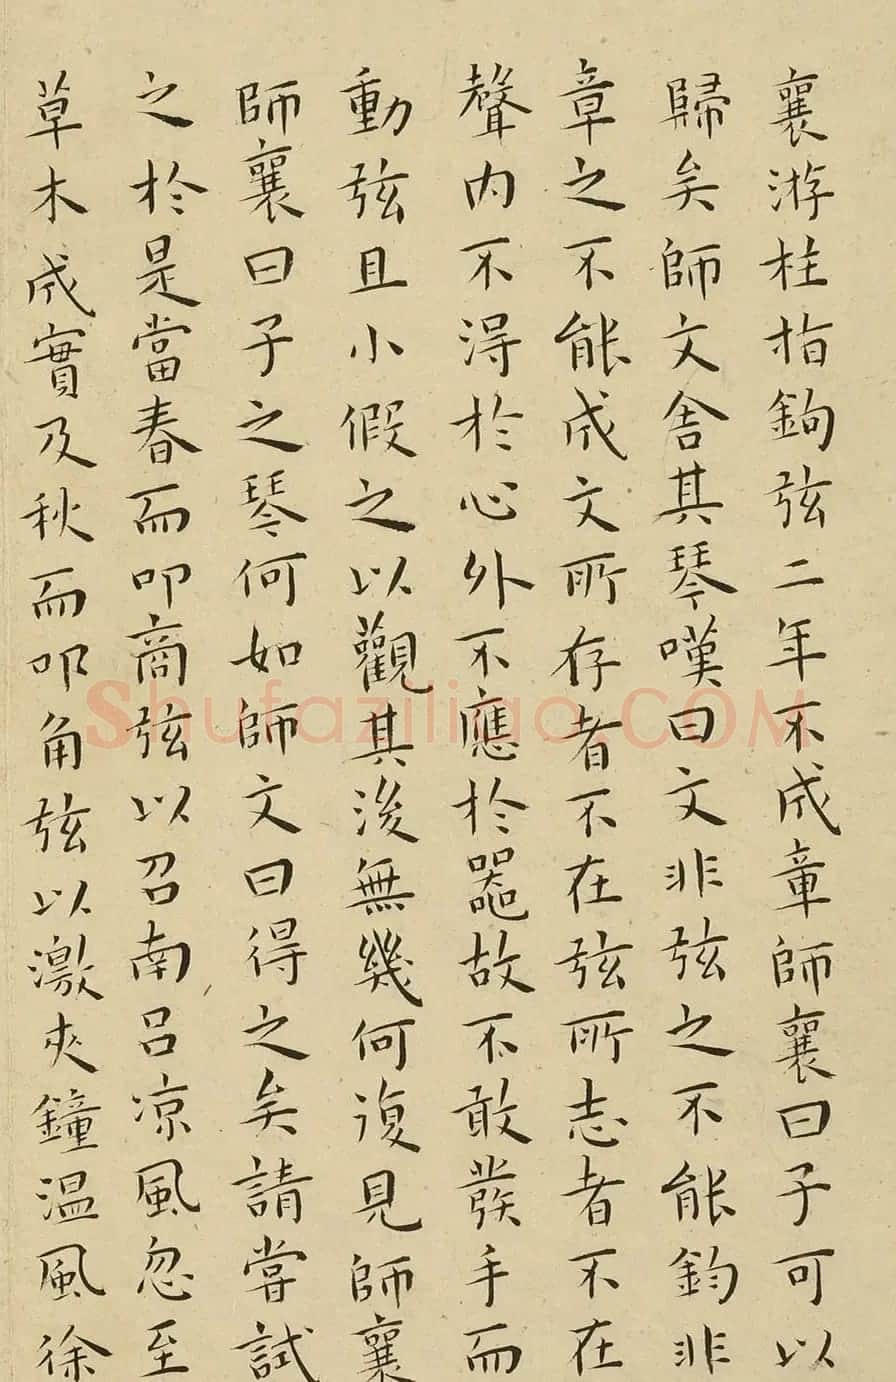 襄游柱指鉤弦二年不成章師襄曰子可以
歸矣師文舍其琴嘆曰文非弦之不能鈞非
章之不能成文所存者不在弦所志者不在
聲内不得於心外不應於器故不敢發手而
動弦且小假之以觀其後無幾何復見師襄
師襄曰子之琴何如師文曰得之矣請嘗試
之於是當春而叩商弦以召南吕凉風忽至
草木成實及秋而叩角弦以激夾鐘温風徐
Shufaziliao.COM